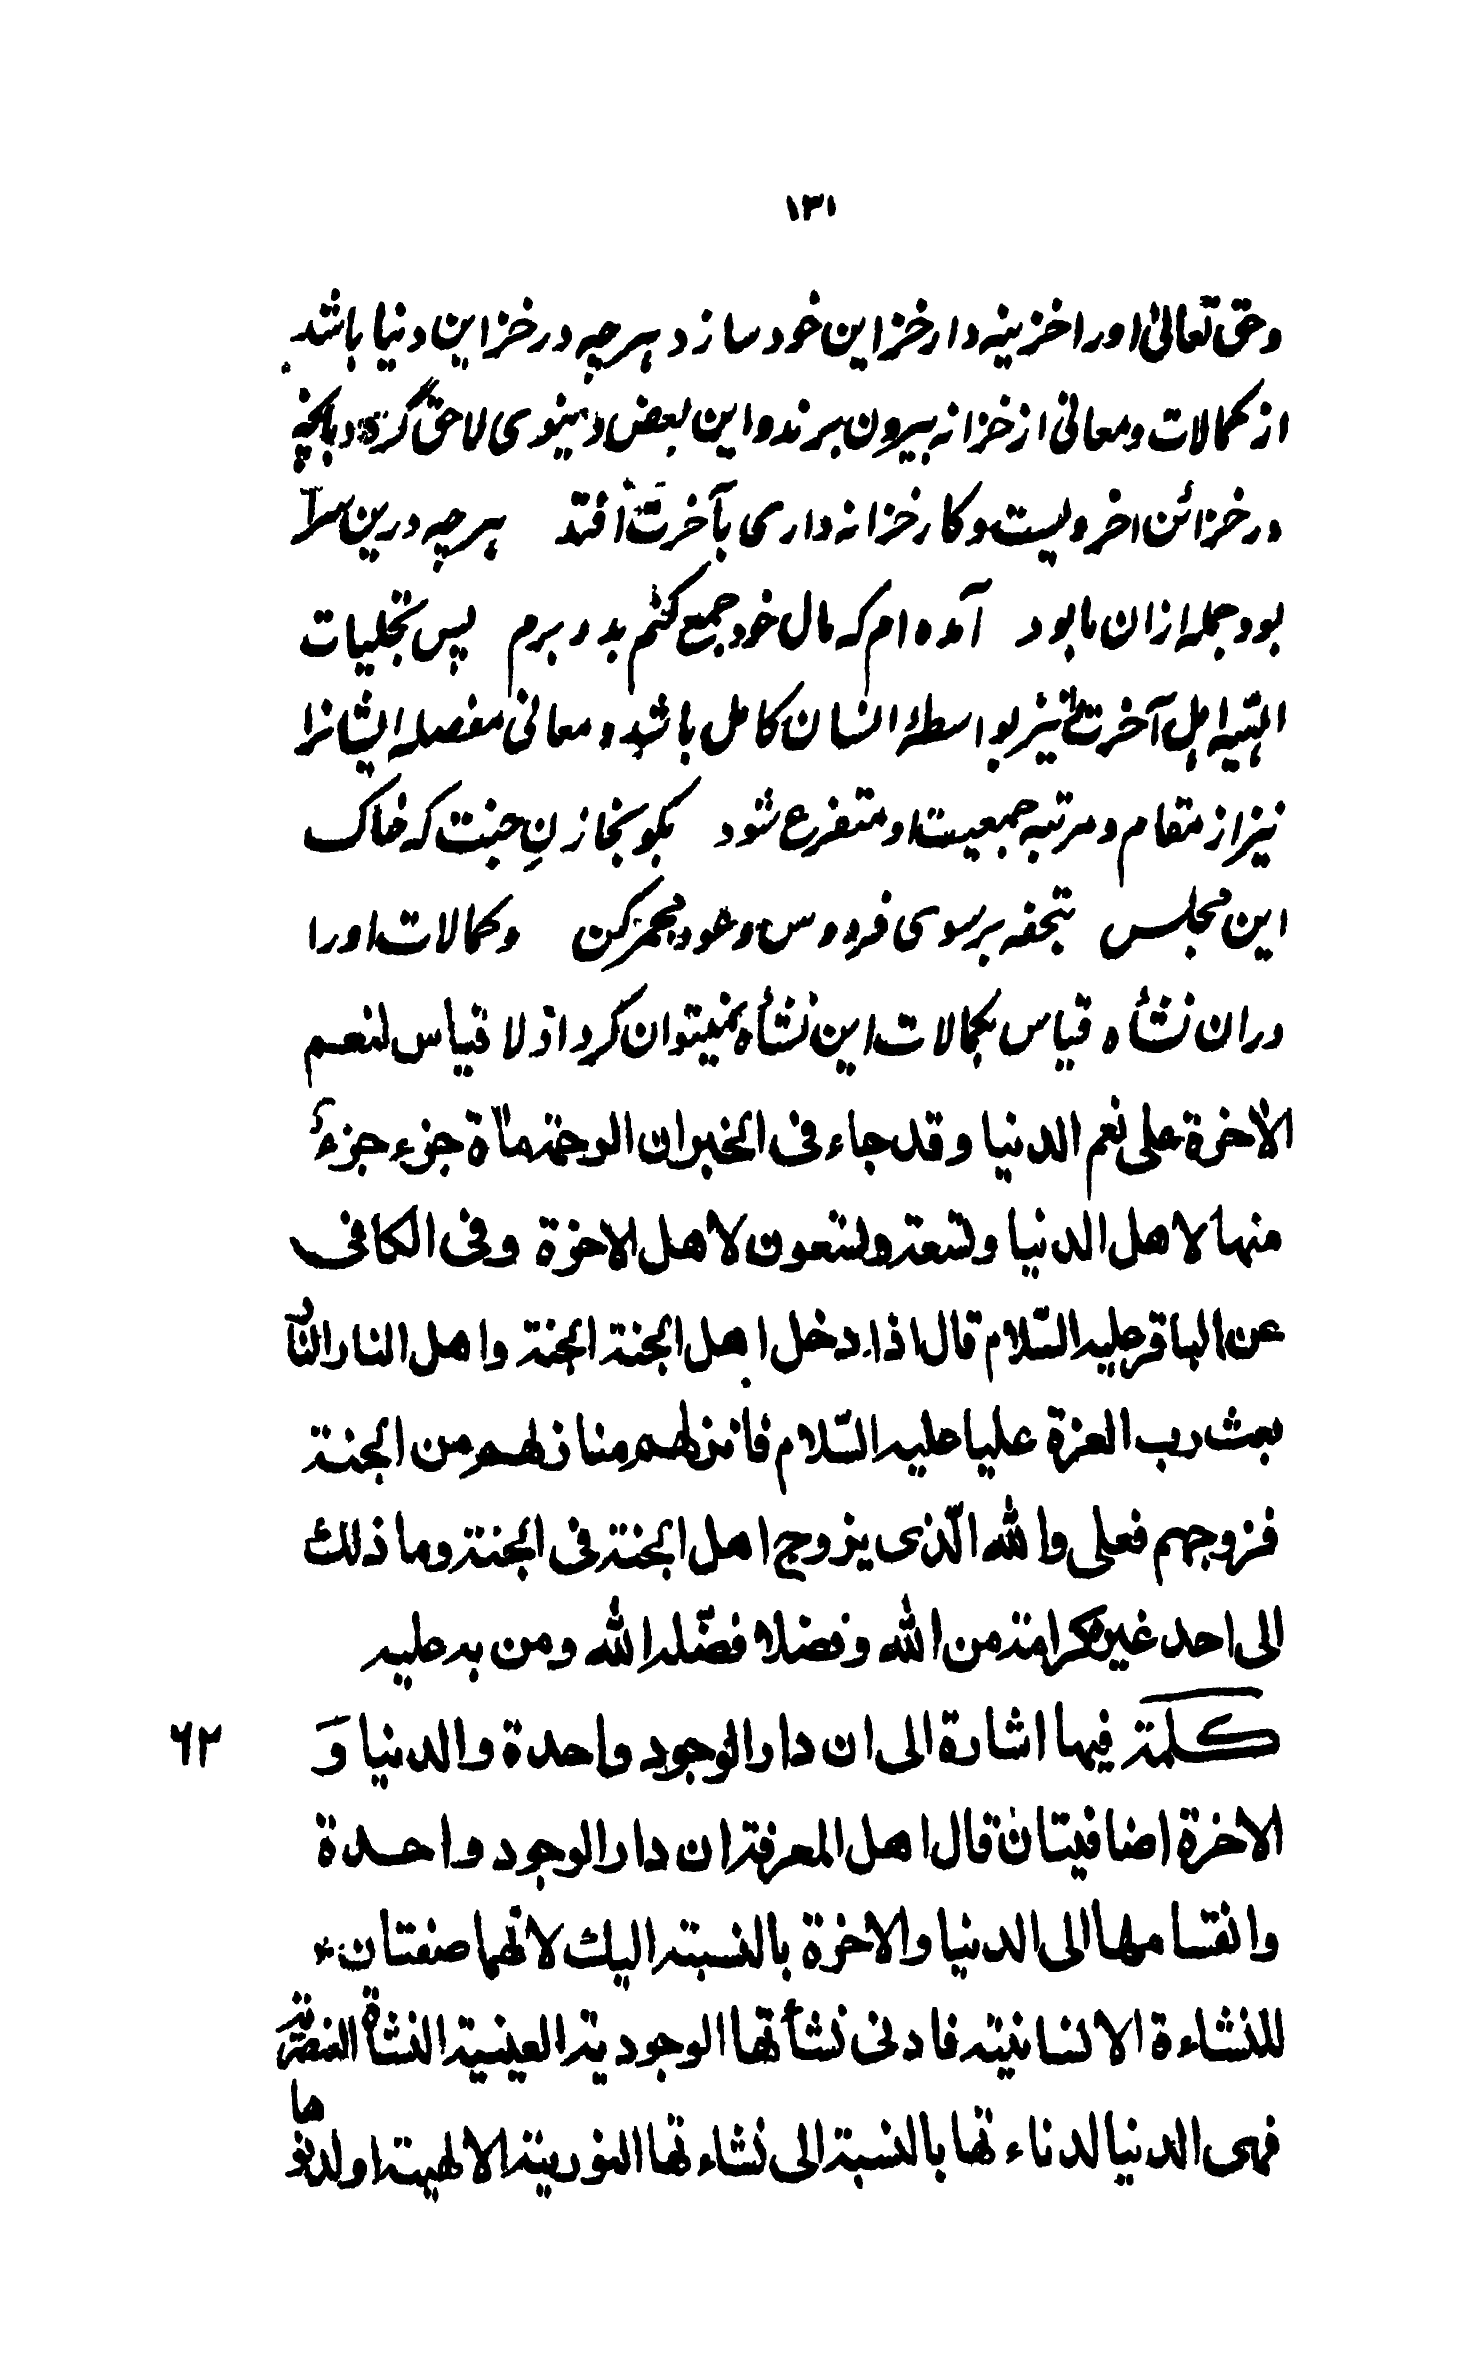 ١٣١
وحق تعالی اورا خزینه دار خزاین خود سازد هرچه در خزاین دنیا باشد
از کمالات ومعانی از خزانه بیرون برند و این بعض دنیوی لاحق گردد بآنچه
در خزائن اخرویست و کار خزانه داری بآخرت افتد هرچه درین سرا
بود جمله ازان ما بود آمده ام که مال خود جمع کنم بدو برم پس تجلیات
الهیه اهل آخرت نیز بواسطهٔ انسان کامل باشد و معانی مفصله ایشانرا
نیز از مقام و مرتبه جمعیت او متفرع شود بگو بخازنِ جنت که خاک
این مجلس بتحفه بر سوی فردوس و عود مجمر کن و کمالات اورا
دران نشأه قیاس بکمالات این نشأه نمیتوان کرد اذ لا قیاس لنعم
الاخرة على نعم الدنيا وقد جاء في الخبر ان الرحمة مأة جزء جزءٌ
منها لاهل الدنيا وتسعة وتسعون لاهل الاخرة وفي الكافي
عن الباقر عليه السّلام قال اذا دخل اهل الجنة الجنة واهل النار النار
بعث رب العزة عليا عليه السّلام فانزلهم منازلهم من الجنة
فزوجهم فعلي والله الّذي يزوج اهل الجنة في الجنة وما ذلك
الى احد غيره كرامة من الله وفضلا فضّله الله ومن به عليه
كلمة فيها اشارة الى ان دار الوجود واحدة والدنيا وَ ٦٢
الاخرة اضافيتان قال اهل المعرفة ان دار الوجود واحدة
وانقسامها الى الدنيا والاخرة بالنسبة اليك لانّهما صفتان
للنشاءة الانسانيّة فادنى نشأتها الوجودية العينية النشأة العنصريّة
فهي الدنيا لدناءتها بالنسبة الى نشاءتها النورية الالهية او لدنوها